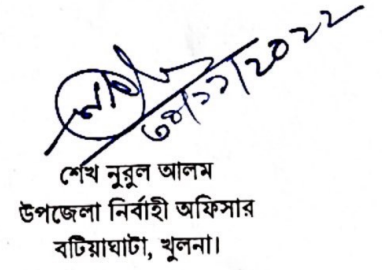 ৩০/১১/২০২২
শেখ নুরুল আলম
উপজেলা নির্বাহী অফিসার
বটিয়াঘাটা, খুলনা।